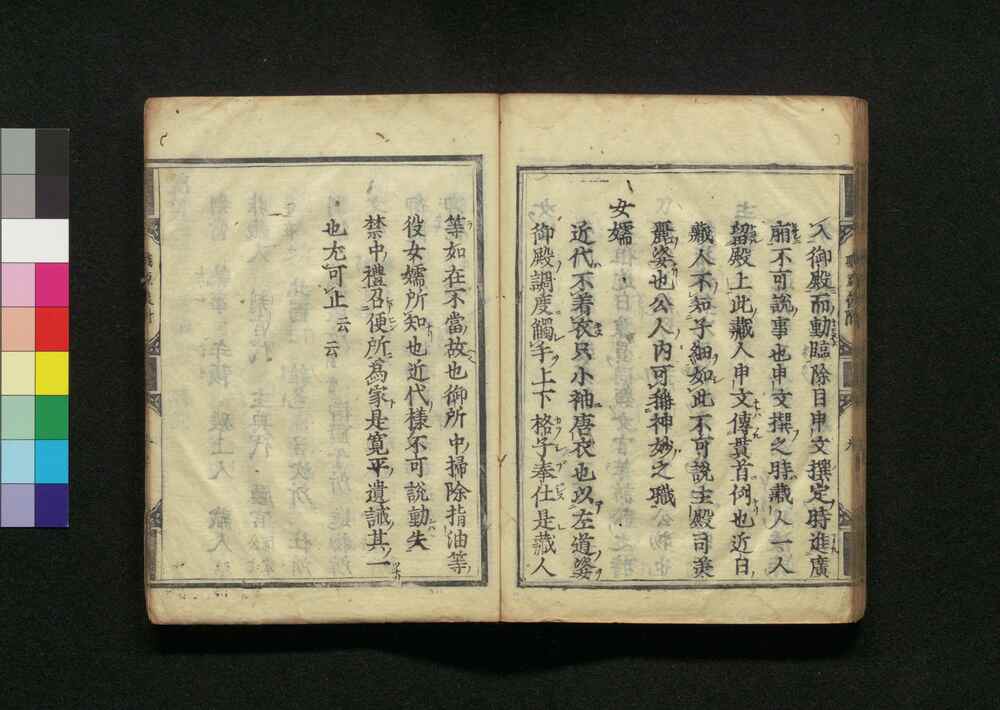 入御殿而動臨除目申文撰定時進廣
廂不可說事也申文撰之時藏人一人
留殿上此藏人申文傳貫首例也近日
藏人不知子細如此不可說主殿司兼
麗姿也公人內可稱神妙之職
女嬬
近代不着衣只小袖唐衣也以左道姿
御殿調度觸手上下格子奉仕是藏人
等如在不當故也御所中掃除指油等
役女嬬所知也近代樣不可說動失
禁中禮召便所爲家是寬平遺誡其一
也尤可止云云